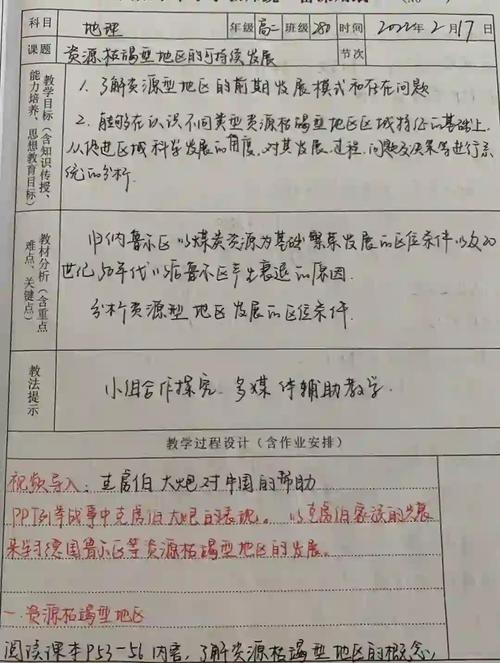 科目 地理 年级 高二 班级 280 时间 2022年2月17日
课题 资源枯竭型地区的可持续发展 节次
教学目标（含知识传授、能力培养、思想教育目标）
1. 了解资源型地区的前期发展模式和存在问题
2. 能够在认识不同类型资源枯竭型地区区域特征的基础上,
从促进区域科学发展的角度,对其发展、过程,问题及决策等进行系
统的分析.
教材分析（含重点难点、关键点）
归纳鲁尔区以煤炭资源为基础繁荣发展的区位条件以及20
世纪50年代以后鲁尔区产生衰退的原因.
分析资源型地区发展的区位条件.
教法提示
小组合作探究、多媒体辅助教学.
教学过程设计（含作业安排）
视频导入: 克虏伯大炮对中国的帮助
PPT列举战争中克虏伯大炮的表现。以克虏伯家族的发展
来学习德国鲁尔区等资源枯竭型地区的发展。
一.资源枯竭型地区
阅读课本P53-56内容,了解资源枯竭型地区的概念,